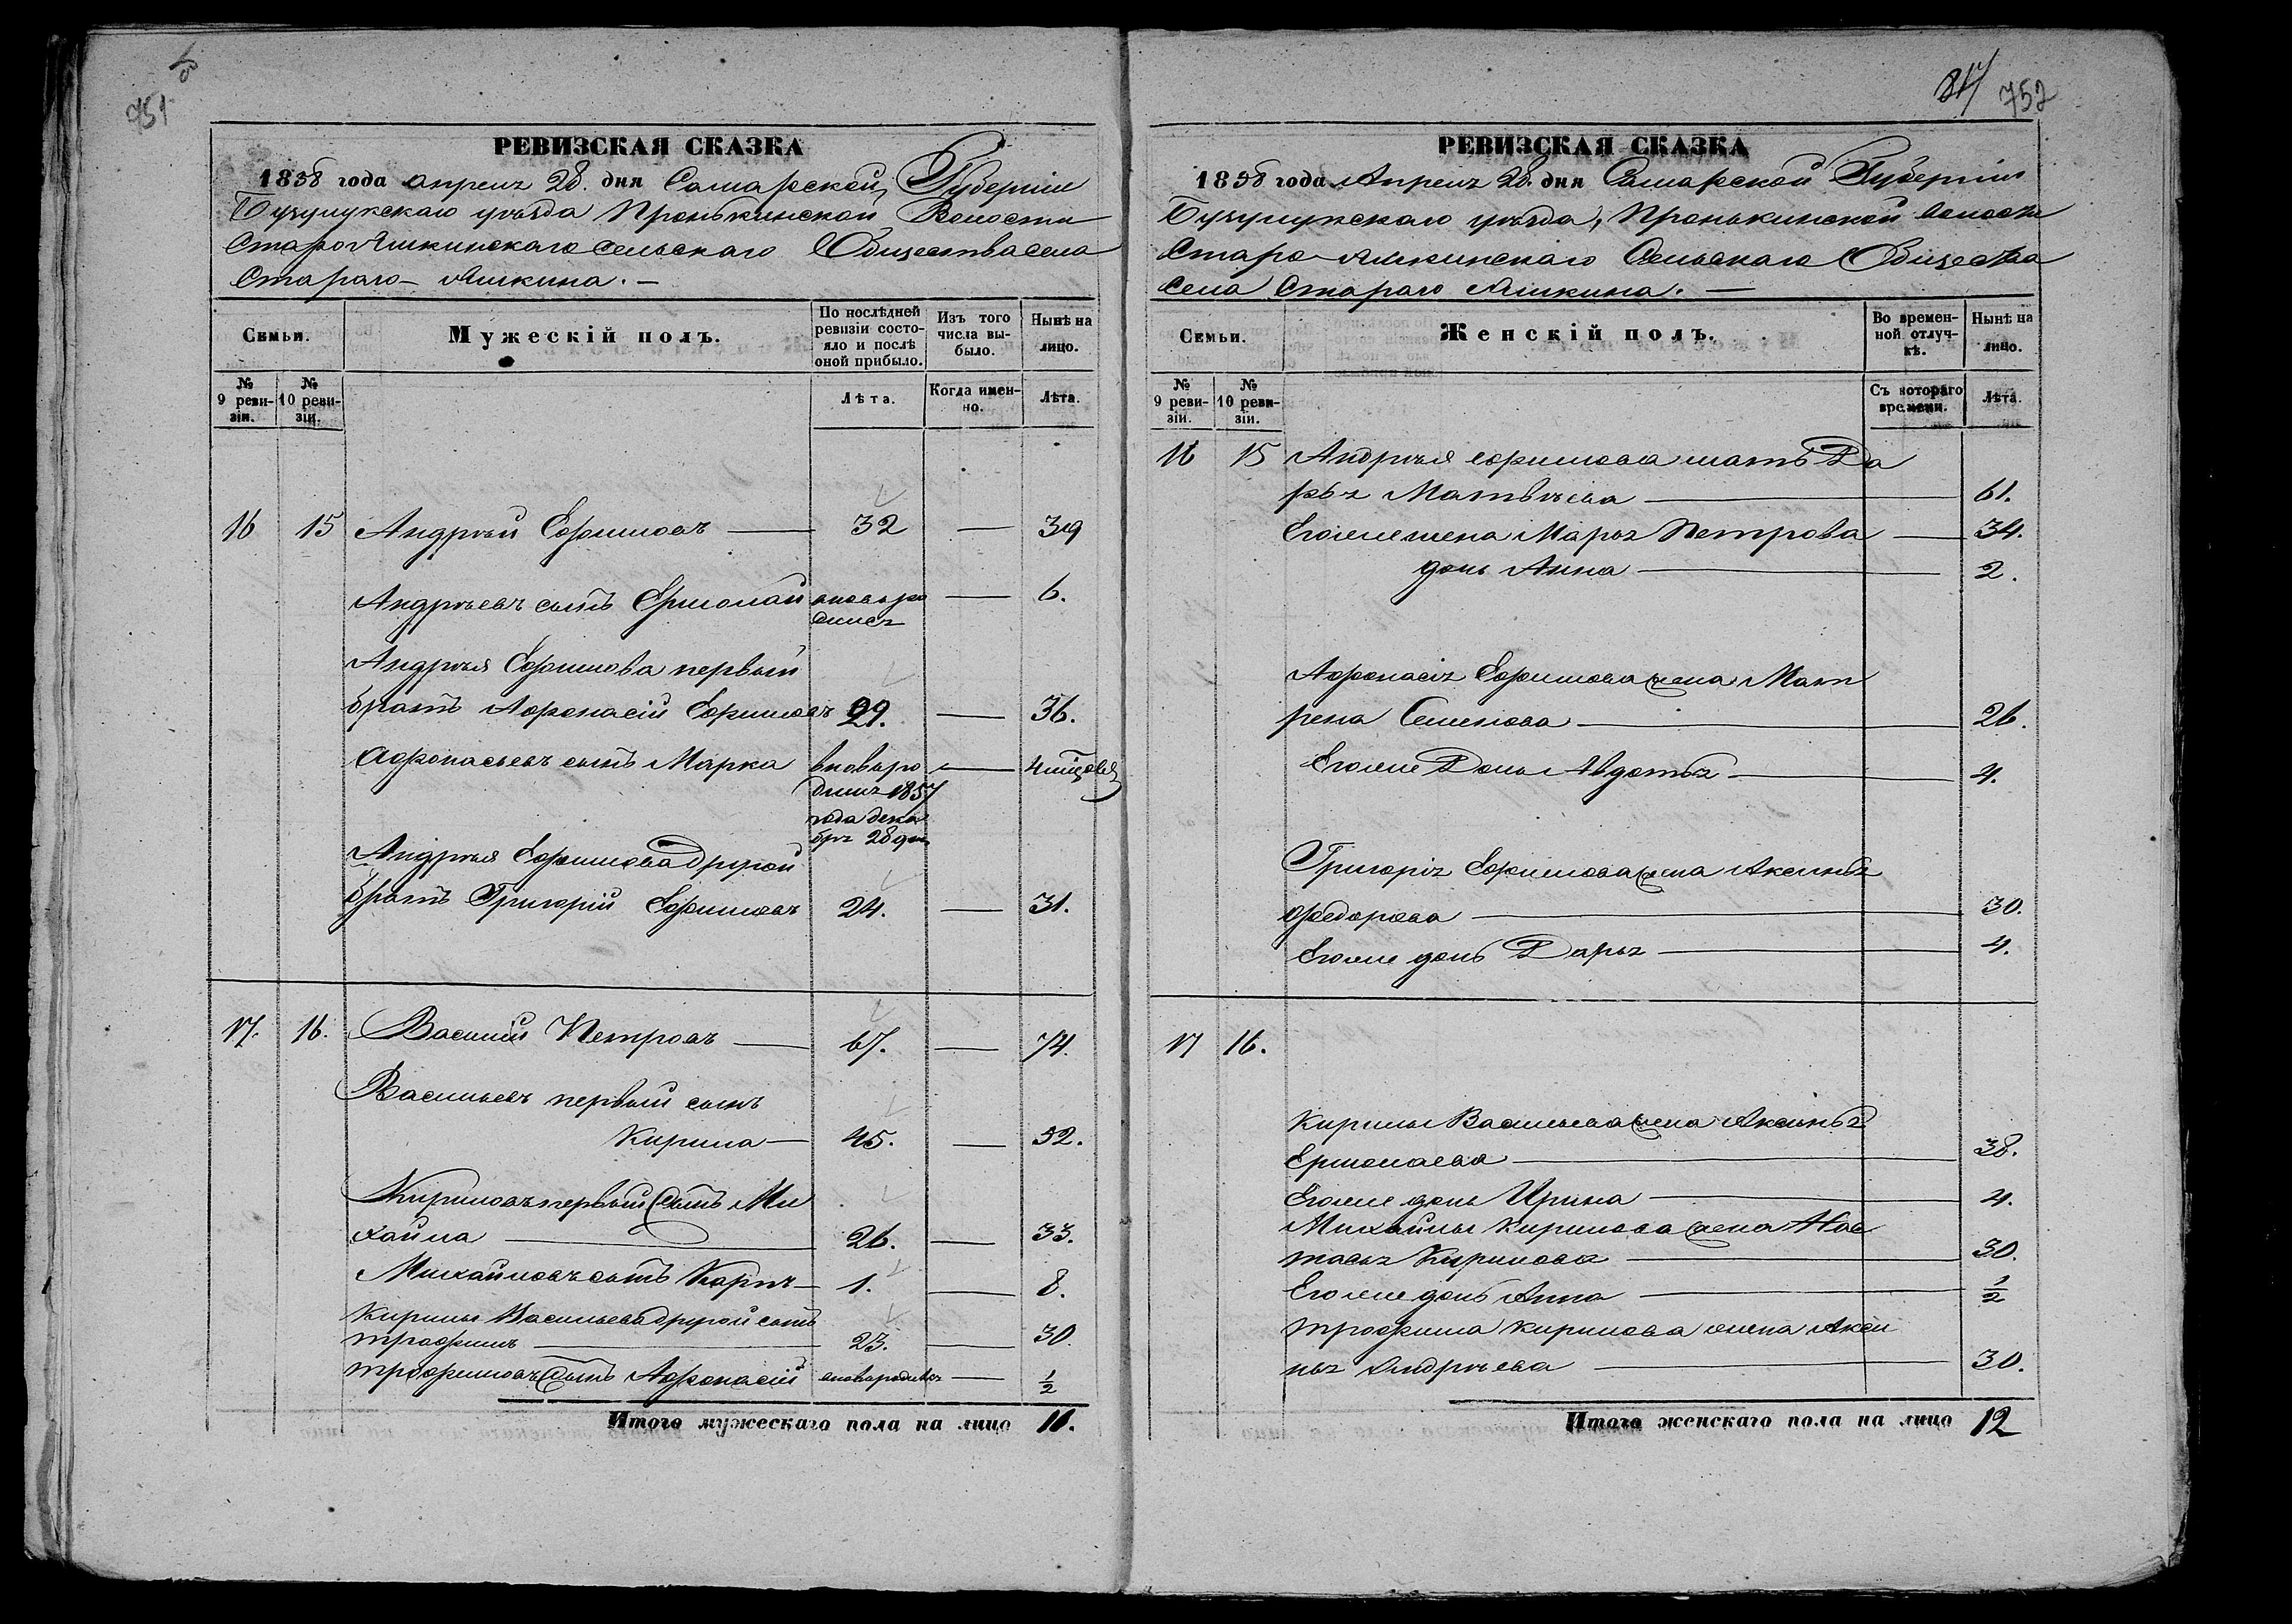 751
РЕВИЗСКАЯ СКАЗКА
1858 года апреля 28. дня Самарской Губерніи
Бузулукскаго уѣзда Пронькинской Волости
Старо Яшкинскаго сельскаго Общества села
Стараго-Яшкина.-
Семьи.
Мужескій полъ.
По послѣдней ревизіи состояло и послѣ оной прибыло.
Изъ того числа выбыло.
Нынѣ на лицо.
№ 9 ревизіи.
№ 10 ревизіи.
Лѣта.
Когда именно.
Лѣта.
16 15 Андрѣй Ефимовъ — 32 — 39
Андрѣевъ сынъ Ермолай вновь ро — 6.
дился
Андрѣя Ефимова первый
братъ Афонасій Ефимовъ 29. — 36.
Афонасьевъ сынъ Марка вновь ро — 4 месяц
дился 1857
года дека
бря 28 дня
Андрѣя Ефимова другой
братъ Григорій Ефимовъ 24. — 31.
17. 16. Василій Петровъ — 67. — 74.
Васильевъ первый сынъ
Кирила — 45. — 52.
Кириловъ первый сынъ Ми
хайла — 26. — 33.
Михайловъ сынъ Карпъ — 1. — 8.
Кирилы Васильева другой сынъ
Трофимъ — 23. — 30.
Трофимовъ сынъ Афонасій вновь родился — ½
Итого мужескаго пола на лицо 11.
752
РЕВИЗСКАЯ СКАЗКА
1858 года Апреля 28. дня Самарской Губерніи
Бузулукскаго уѣзда, Пронькинской волости
Старо-Яшкинскаго Сельскаго Общества
Села Стараго Яшкина. —
Семьи.
Женскій полъ.
Во временной отлучкѣ.
Нынѣ на лицо.
№ 9 ревизіи.
№ 10 ревизіи.
Съ котораго времени.
Лѣта.
16 15 Андрѣя Ефимова мать Да
рья Матвѣева — 61.
Его же жена Марья Петрова — 34.
дочь Анна — 2.
Афонасія Ефимова жена Мат
рена Семенова — 26.
Его же Дочь Авдотья — 4.
Григорія Ефимова жена Аксинья
Федорова — 30.
Его же дочь Дарья — 4.
17 16.
Кирилы Васильева жена Аксинья
Ермолаева — 38.
Его же дочь Ирина — 4.
Михайлы Кирилова жена Нас
тасья Кирилова — 30.
Его же дочь Анна — ½
Трофима Кирилова жена Акси
нья Андрѣева — 30.
Итого женскаго пола на лицо 12